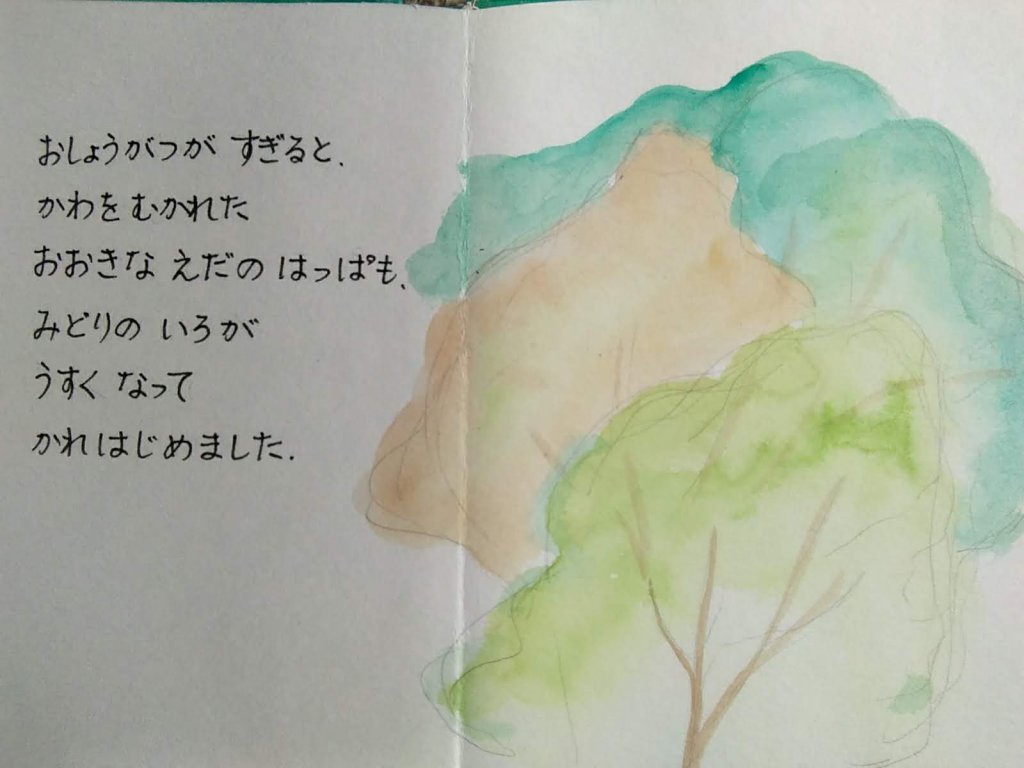 おしょうがつが すぎると、
かわを むかれた
おおきな えだの はっぱも、
みどりの いろが
うすく なって
かれはじめました.